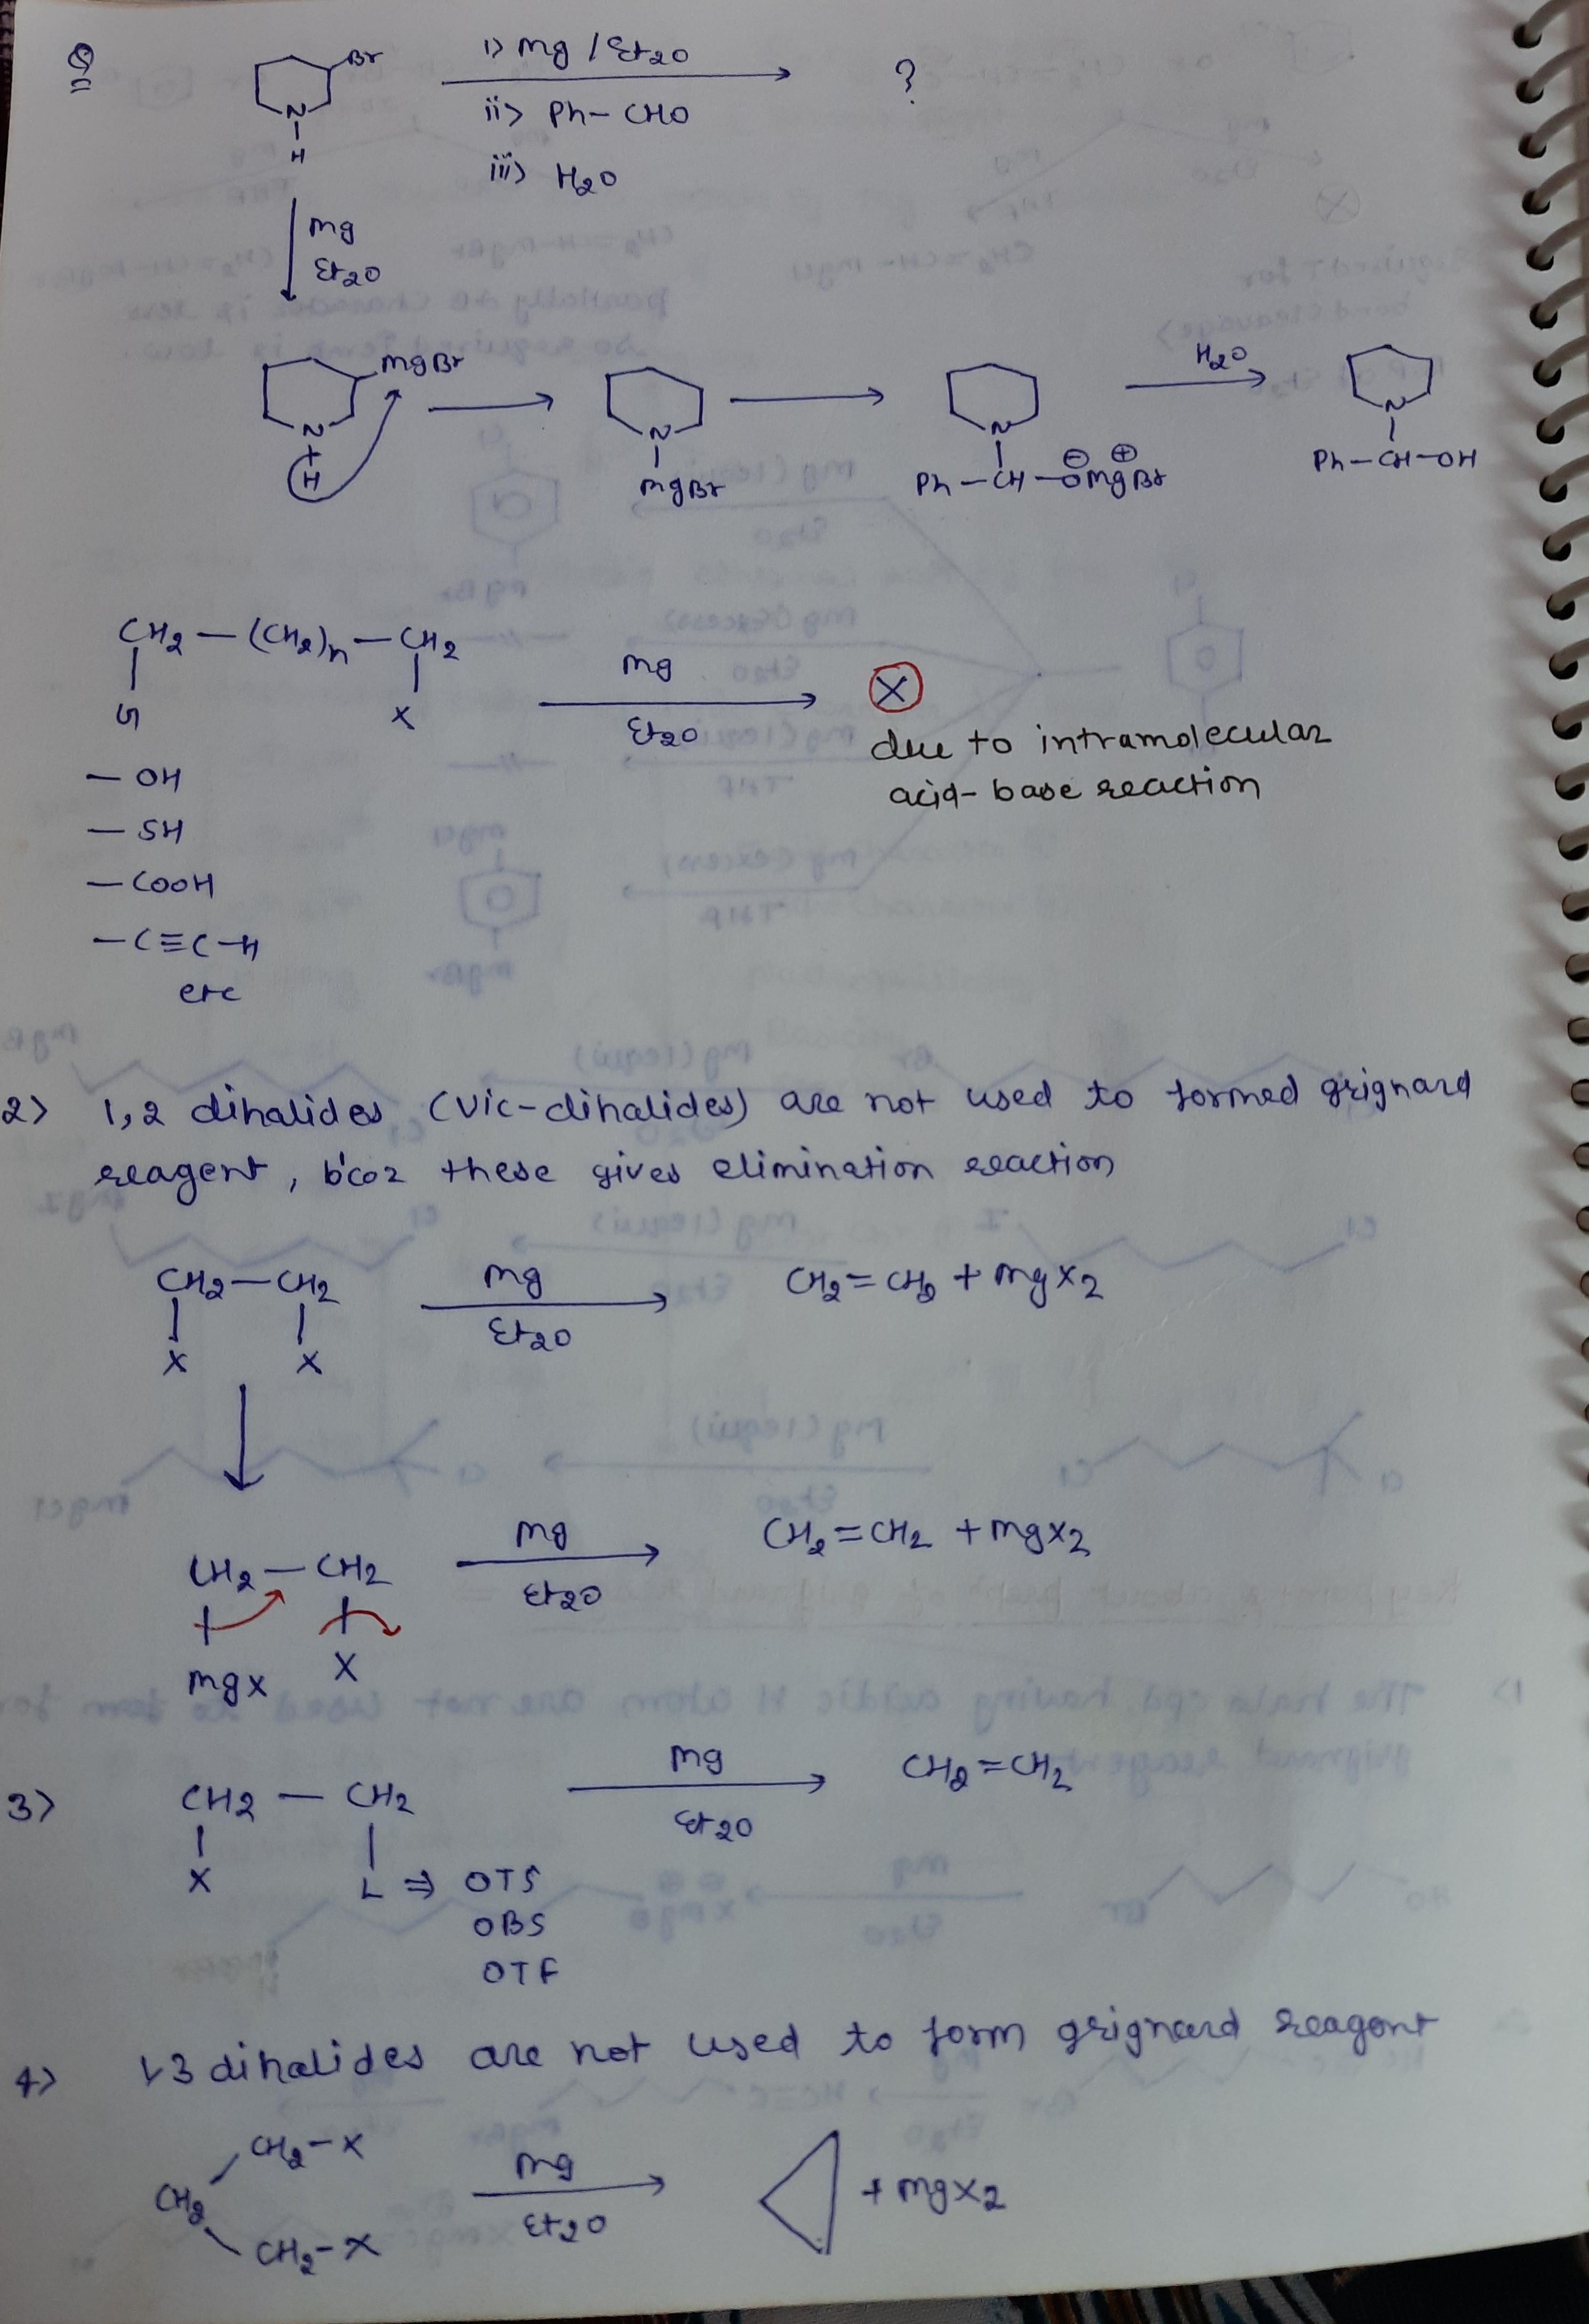 Q
Br
N
H
i> Mg / Et2O
ii> Ph-CHO
iii> H2O
?
Mg
Et2O
MgBr
N
H
N
MgBr
N
Ph-CH-O⊖MgBr⊕
H2O
N
Ph-CH-OH
CH2-(CH2)n-CH2
G
X
Mg
Et2O
X
due to intramolecular
acid-base reaction
- OH
- SH
- COOH
- C≡C-H
etc
2> 1,2 dihalides (vic-dihalides) are not used to formed grignard
reagent, b'coz these gives elimination reaction
CH2-CH2
X X
Mg
Et2O
CH2=CH2 + MgX2
CH2-CH2
MgX X
Mg
Et2O
CH2=CH2 + MgX2
3> CH2 - CH2
X L ⇒ OTS
OBS
OTF
Mg
Et2O
CH2=CH2
4> 1,3 dihalides are not used to form grignard reagent
CH2-X
CH2
CH2-X
Mg
Et2O
+ MgX2